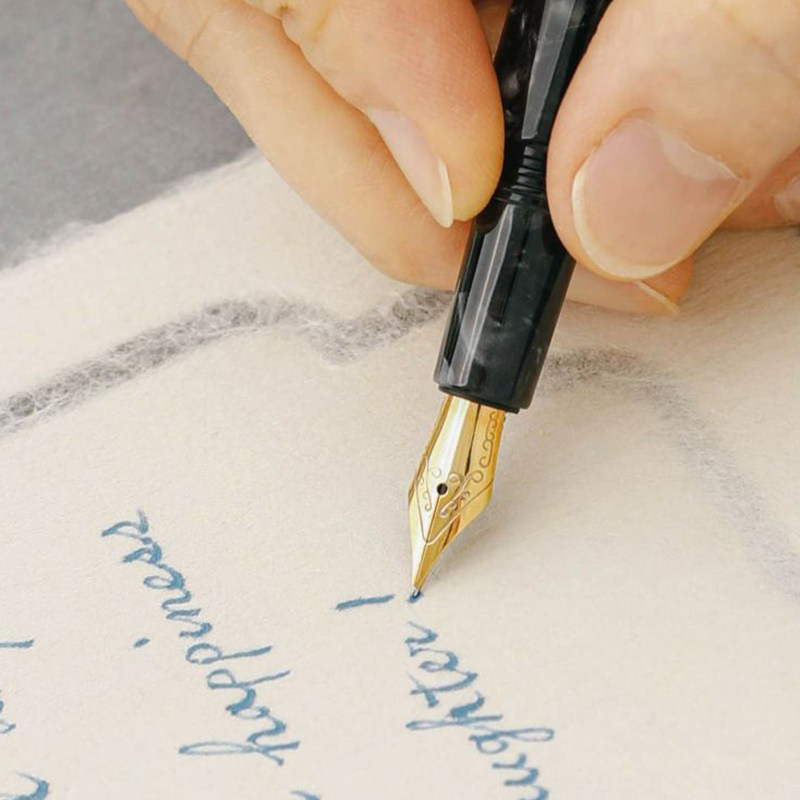 happiness
ughter!